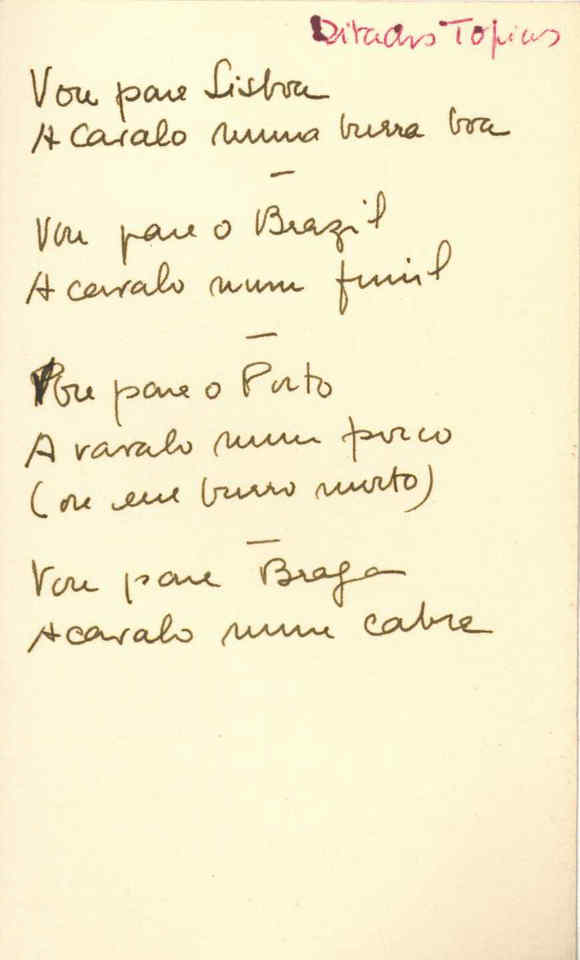 Ditados Tópicos
Vou para Lisboa
A cavalo numa burra boa
—
Vou para o Brazil
A cavalo num funil
—
Vou para o Porto
A cavalo num porco
(ou em burro morto)
—
Vou para Braga
A cavalo numa cabra